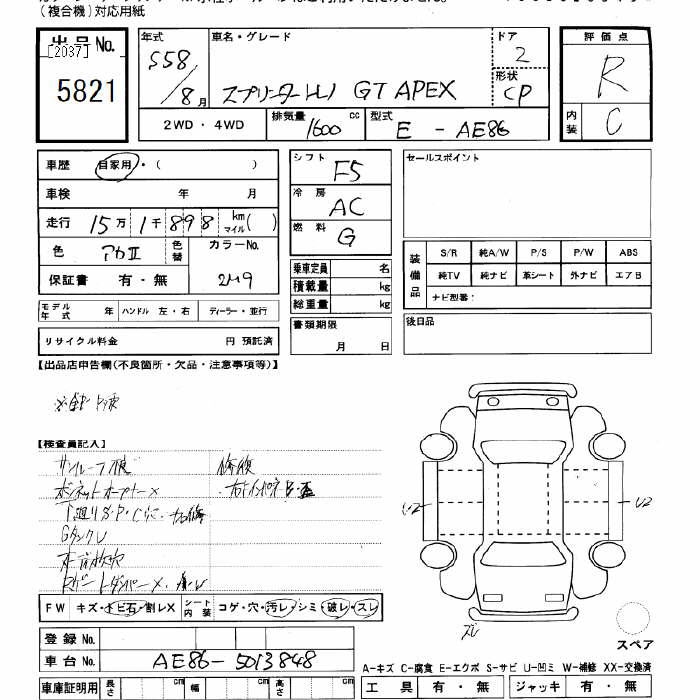 (複合機)対応用紙
出品No.
[2037]
5821
年式
S58
8月
車名・グレード
GT APEX
ドア
2
形状
CP
2WD・4WD
排気量 1600 cc
型式 E - AE86
評価点
R
内装 C
車歴 自家用・( )
車検 年 月
走行 15万 1千 898 km マイル( )
色 アカⅡ 色替 カラーNo.
2M9
保証書 有・無
モデル年式 年 ハンドル 左・右 ディーラー・並行
リサイクル料金 円 預託済
シフト F5
冷房 AC
燃料 G
乗車定員 名
積載量 kg
総重量 kg
書類期限
月 日
セールスポイント
装備品
S/R 純A/W P/S P/W ABS
純TV 純ナビ 革シート 外ナビ エアB
ナビ型番:
後日品
【出品店申告欄(不良箇所・欠品・注意事項等)】
【検査員記入】
サンルーフ
修復
ボンネットオープナーX
下廻りS.P.C
Gタンク
FW キズ・トビ石・割レX シート内装 コゲ・穴・汚レ・シミ・破レ・スレ
U2
U2
ズレ
スペア
登録No.
車台No. AE86-5013848
A-キズ C-腐食 E-エクボ S-サビ U-凹ミ W-補修 XX-交換済
車庫証明用 長さ cm 幅 cm 高さ cm
工具 有・無 ジャッキ 有・無